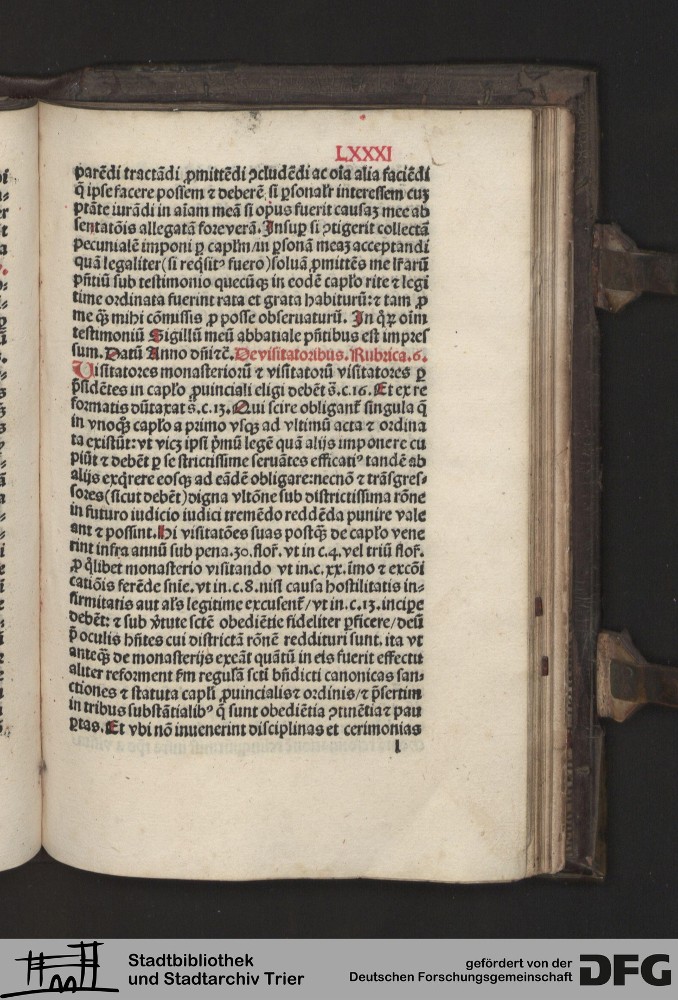 LXXXI
parēdi tractādi ꝓmittēdi ꝯcludēdi ac oīa alia faciēdi
q̄ ipse facere possem ⁊ deberē si ꝑsonalr̄ interessem cuꝫ
ptāte iurādi in aīam meā si opus fuerit causaꝫ mee ab
sentatōis allegatā foreverā. Insuꝑ si ꝯtigerit collectā
pecunialē imponi ꝑ capłm/in ꝑsonā meaꝫ acceptandi
quā legaliter (si reqͥsitꝰ fuero) soluā ꝓmittēs me lr̄arū
pn̄tiū sub testimonio quecūqꝫ in eodē capło rite ⁊ legi
time ordinata fuerint rata et grata habiturū: ⁊ tam ꝓ
me qꝫ mihi cōmissis ꝓ posse obseruaturū. In qͦꝝ oīm
testimoniū Sigillū meū abbatiale pn̄tibus est impres
sum. Datū Anno dn̄i ⁊c̄. De visitatoribus. Rubrica. 6.
Visitatores monasteriorū ⁊ visitatorū visitatores ꝑ
p̄sidētes in capło ꝓuinciali eligi debēt s̄. c. 16. Et ex re
formatis dūtaxat s̄. c. 13. Qui scire obliganṫ singula q̄
in vnoqͦꝫ capło a primo vsqꝫ ad vltimū acta ⁊ ordina
ta existūt: vt vicꝫ ipsi pͥmū legē quā alijs imponere cu
piūt ⁊ debēt ꝑ se strictissime seruātes efficatiꝰ tandē ab
alijs exqͥrere eosqꝫ ad eādē obligare: necnō ⁊ trāsgres⸗
sores (sicut debēt) digna vltōne sub districtissima rōne
in futuro iudicio iudici tremēdo reddēda punire vale
ant ⁊ possint. Hi visitatōes suas postqꝫ de capło vene
rint infra annū sub pena. 30. flor̄. vt in c. 4. vel triū flor̄.
ꝓ qͦlibet monasterio visitando vt in. c. xx. īmo ⁊ excōi
catiōis ferēde sn̄ie. vt in. c. 8. nisi causa hostilitatis in⸗
firmitatis aut als̄ legitime excusenṫ/vt in. c. 13. incipe
debēt: ⁊ sub v̓tute sctē obediētie fideliter ꝑficere/deū
p̄ oculis hn̄tes cui districtā rōnē reddituri sunt. ita vt
anteqꝫ de monasterijs exeāt quātū in eis fuerit effectu
aliter reforment fm regulā scti bn̄dicti canonicas san⸗
ctiones ⁊ statuta capłi ꝓuincialis ⁊ ordinis/⁊ p̄sertim
in tribus substātialibꝰ q̄ sunt obediētia ꝯtinētia ⁊ pau
ꝑtas. Et vbi nō inuenerint disciplinas et cerimonias
l
Stadtbibliothek
und Stadtarchiv Trier
gefördert von der
Deutschen Forschungsgemeinschaft
DFG